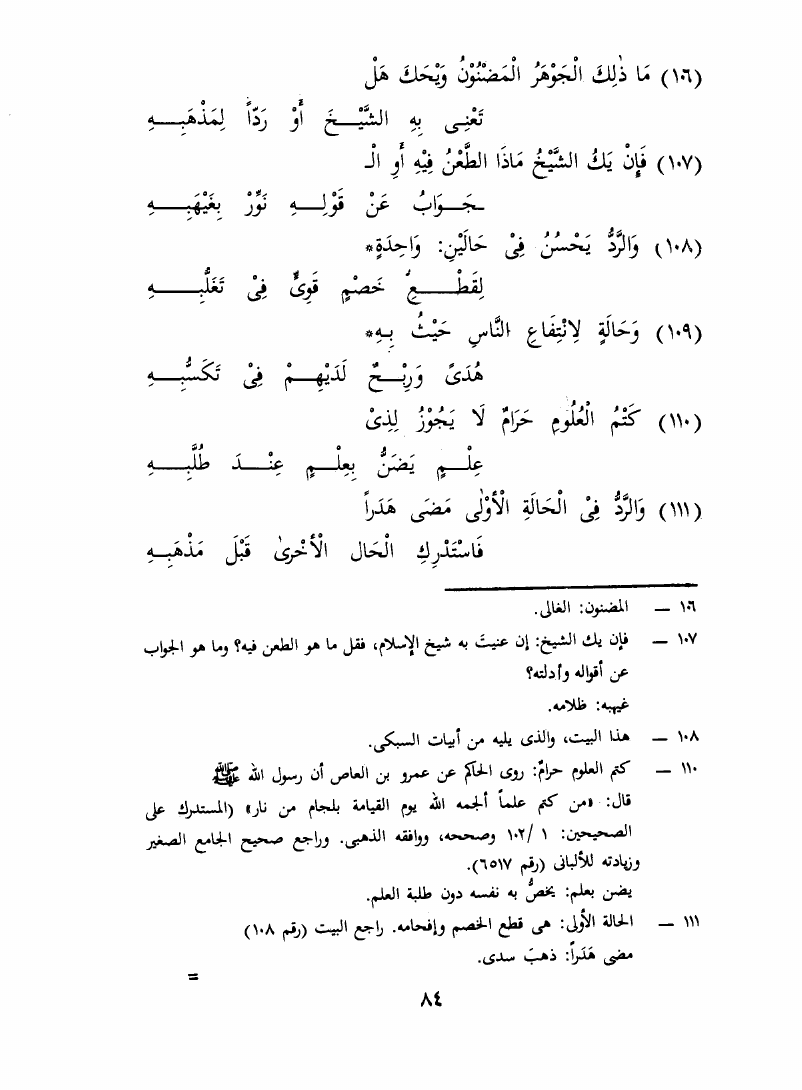 (١٠٦) مَا ذٰلِكَ الْجَوْهَرُ الْمَضْنُوْنُ وَيْحَكَ هَلْ
تَعْنِى بِهِ الشَّيْخَ أَوْ رَدّاً لِمَذْهَبِهِ
(١٠٧) فَإِنْ يَكُ الشَّيْخُ مَاذَا الطَّعْنُ فِيْهِ أَوِ الْـ
ـجَوَابُ عَنْ قَوْلِهِ نَوِّرْ بِغَيْهَبِهِ
(١٠٨) وَالرَّدُّ يَحْسُنُ فِىْ حَالَيْنِ: وَاحِدَةٍ*
لِقَطْعِ خَصْمٍ قَوِىٍّ فِىْ تَغَلُّبِهِ
(١٠٩) وَحَالَةٍ لِانْتِفَاعِ النَّاسِ حَيْثُ بِهِ*
هُدَىً وَرِبْحٌ لَدَيْهِمْ فِىْ تَكَسُّبِهِ
(١١٠) كَتْمُ الْعُلُوْمِ حَرَامٌ لَا يَجُوْزُ لِذِىْ
عِلْمٍ يَضَنُّ بِعِلْمٍ عِنْدَ طُلَّبِهِ
(١١١) وَالرَّدُّ فِىْ الْحَالَةِ الْأُوْلٰى مَضَى هَدَراً
فَاسْتَدْرِكِ الْحَال الْأُخْرىٰ قَبْلَ مَذْهَبِهِ
١٠٦ — المضنون: الغالى.
١٠٧ — فإن يك الشيخ: إن عنيتَ به شيخ الإسلام، فقل ما هو الطعن فيه؟ وما هو الجواب
عن أقواله وأدلته؟
غيهبه: ظلامه.
١٠٨ — هذا البيت، والذى يليه من أبيات السبكى.
١١٠ — كتم العلوم حرامٌ: روى الحاكم عن عمرو بن العاص أن رسول الله ﷺ
قال: «من كتم علماً ألجمه الله يوم القيامة بلجام من نار» (المستدرك على
الصحيحين: ١ /١٠٢ وصححه، ووافقه الذهبى. وراجع صحيح الجامع الصغير
وزيادته للألبانى (رقم ٦٥١٧).
يضن بعلم: يخصُّ به نفسه دون طلبة العلم.
١١١ — الحالة الأولى: هى قطع الخصم وإفحامه. راجع البيت (رقم ١٠٨)
مضى هَدَراً: ذهبَ سدى.
=
٨٤